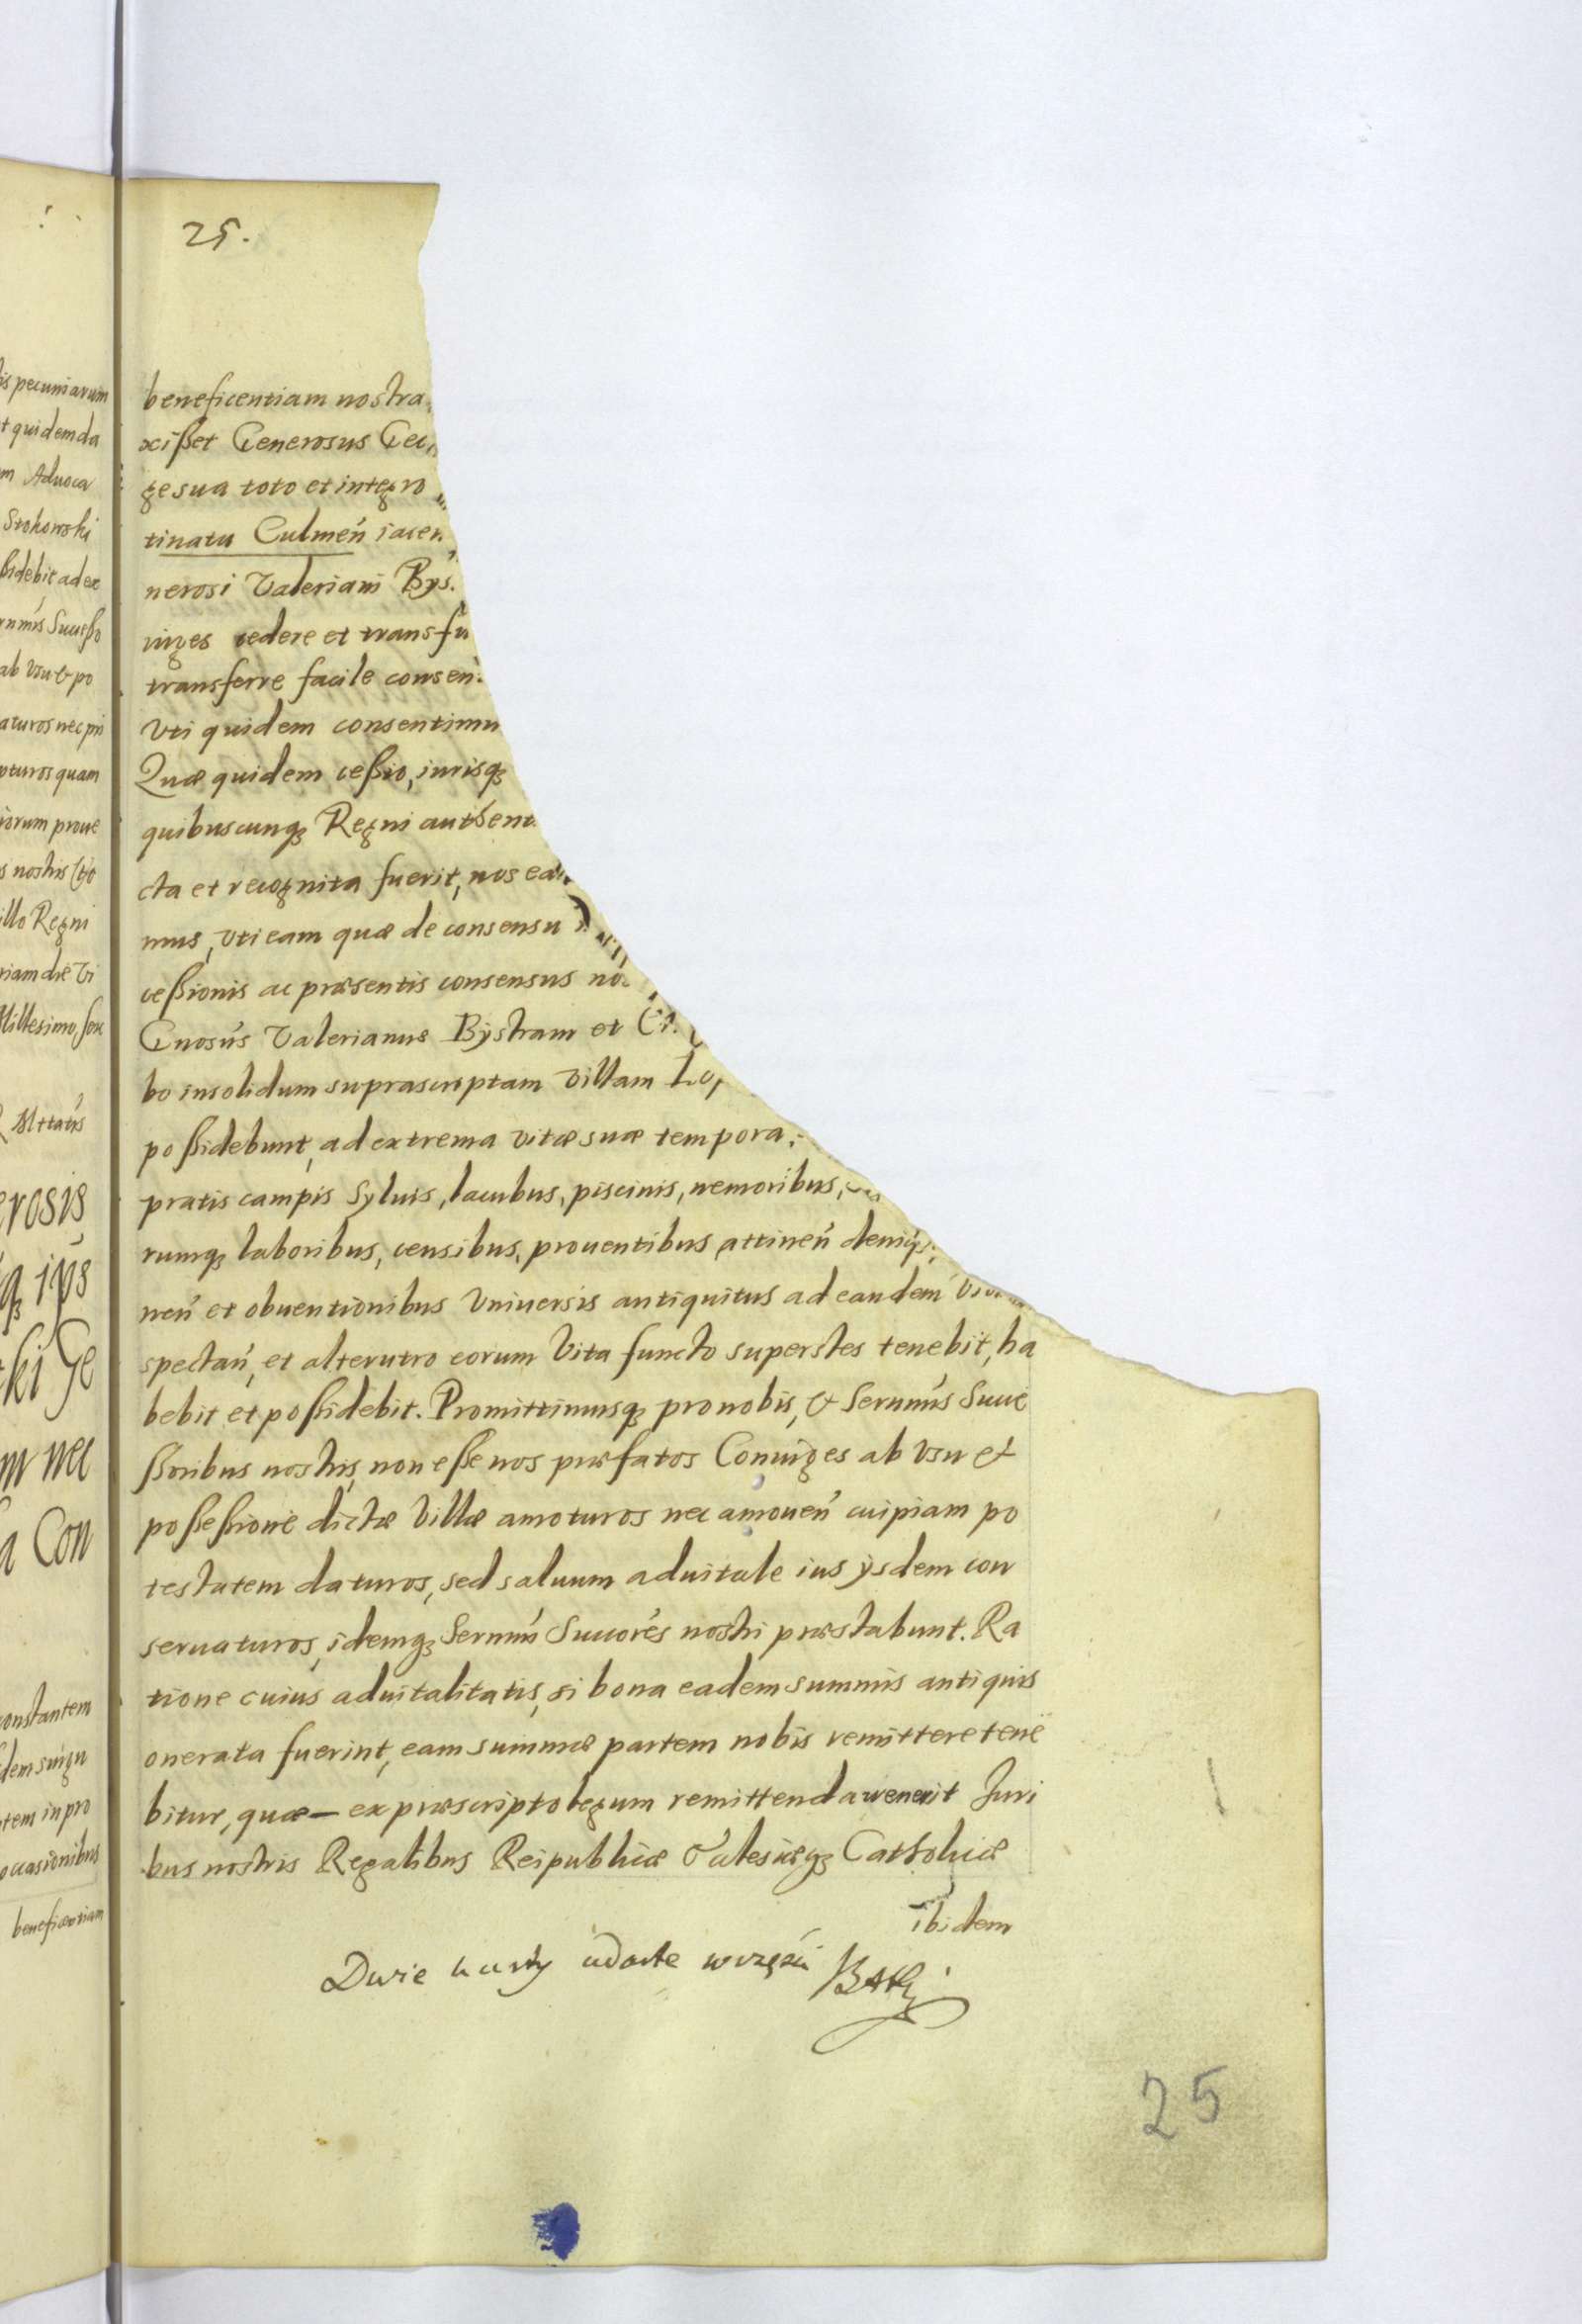 is pecuniarum
t quidem da
m Aduoca
Stokowski
ssidebit ad ex
ab vsu & po
aturos nec
pturos quam
iorum proue
s nostris
illo Regni
Millesimo sex
erosis
ki Ge
m nec
a Con
constantem
dem
tem in pro
occasionibus
25.
beneficentiam nostra
xisset Generosus
ge sua toto et integro
tinatu Culmeń iacen
nerosi Valeriani Bys
iuges cedere et transfu
transferre facile consen
Vti quidem consentimu
Quæ quidem cessio, iurisq3
quibuscunq3 Regni authent
cta et recognita fuerit, nos ea
mus, vti eam quæ de consensu
cessionis ac præsentis consensus no
Gnosús Valerianus Bystram et
bo insolidum suprascriptam villam
possidebunt, ad extrema vitæ suæ tempora
pratis campis syluis, lacubus, piscinis, nemoribus,
rumq3 laboribus, censibus, prouentibus attineń
neń et obuentionibus Vniuersis antiquitus ad eandem
spectań, et alterutro eorum Vita functo superstes tenebit, ha
bebit et possidebit. Promittimusq3 pro nobis, & Sermús Succe
ssoribus nostris, non esse nos præfatos Coniuges ab vsu et
possessione dictæ Villæ amoturos nec amoueń cuipiam po
testatem daturos, sed saluum aduitale ius ÿsdem con
seruaturos, idemq3 Sermú Succorés nostri præstabunt. Ra
tione cuius aduitalitatis, si bona eadem summis antiquis
onerata fuerint, eam summæ partem nobis remittere tene
bitur, quæ – ex præscripto legum remittenda venerit Juri
bus nostris Regalibus Reipublicæ Catholicæ
ibidem
Dwie karty
25